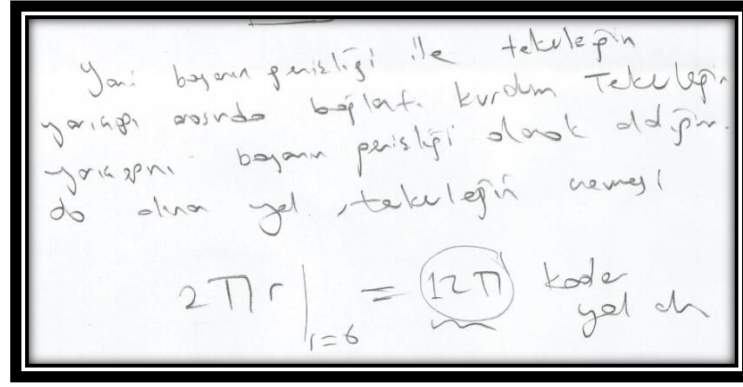 Yani boyanın genişliği ile tekerleğin
yarıçapı arasında bağlantı kurdum Tekerleğin
yarıçapını boyanın genişliği olarak aldığım
da alınan yol, tekerleğin çevresi
2πr|r=6 = 12π kadar
yol alır